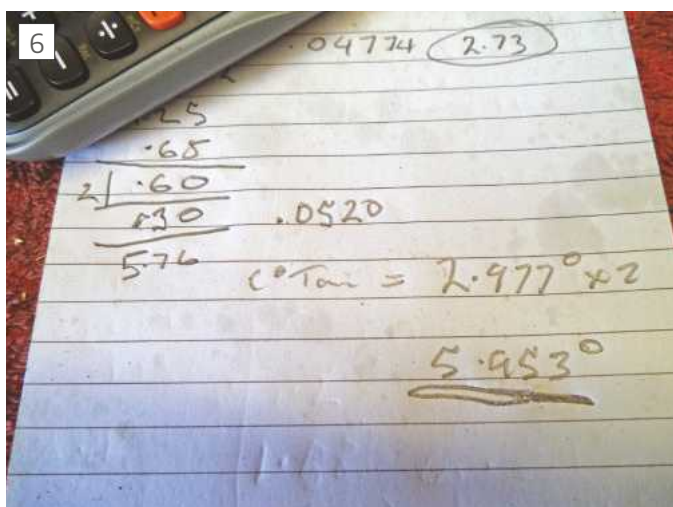 6
.04774 2.73
.25
.65
2 .60
.30 .0520
5.76
Tan = 2.977° x 2
5.953°